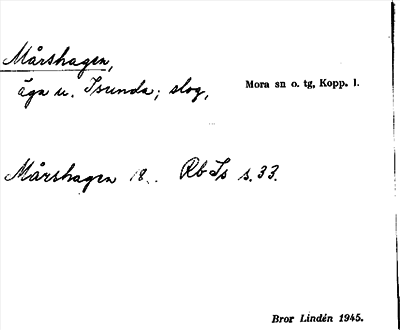 Mårshagen,
äga u. Isunda; slog,
Mora sn o. tg, Kopp. l.
Mårshagen 18.. Rb Is s. 33.
Bror Lindén 1945.